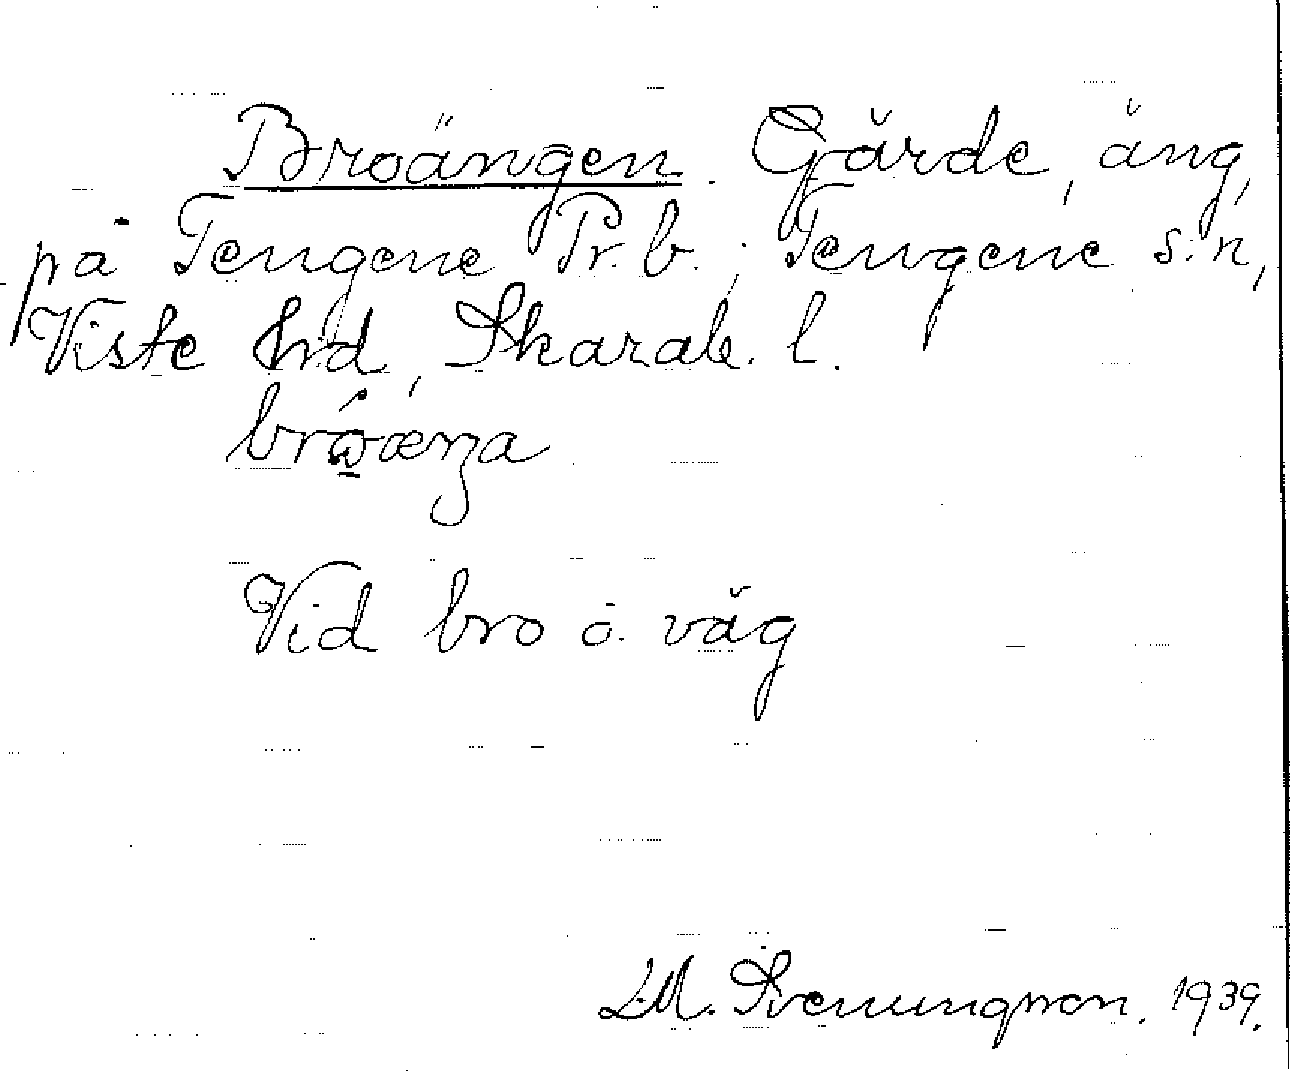 Broängen. Gärde, äng,
på Tengene Pr.b., Tengene s:n,
Viste hd, Skarab. l.
Vid bro o. väg
M. Svenungsson. 1939.